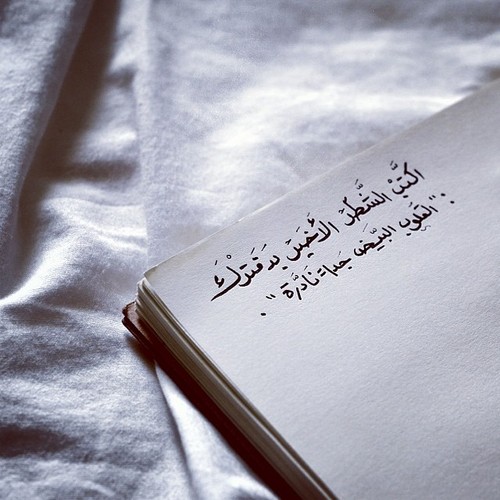 اكتبْ السَّطرَ الأخيرَ بدفترك
: "القلوب البيّض جدا نادرة" .